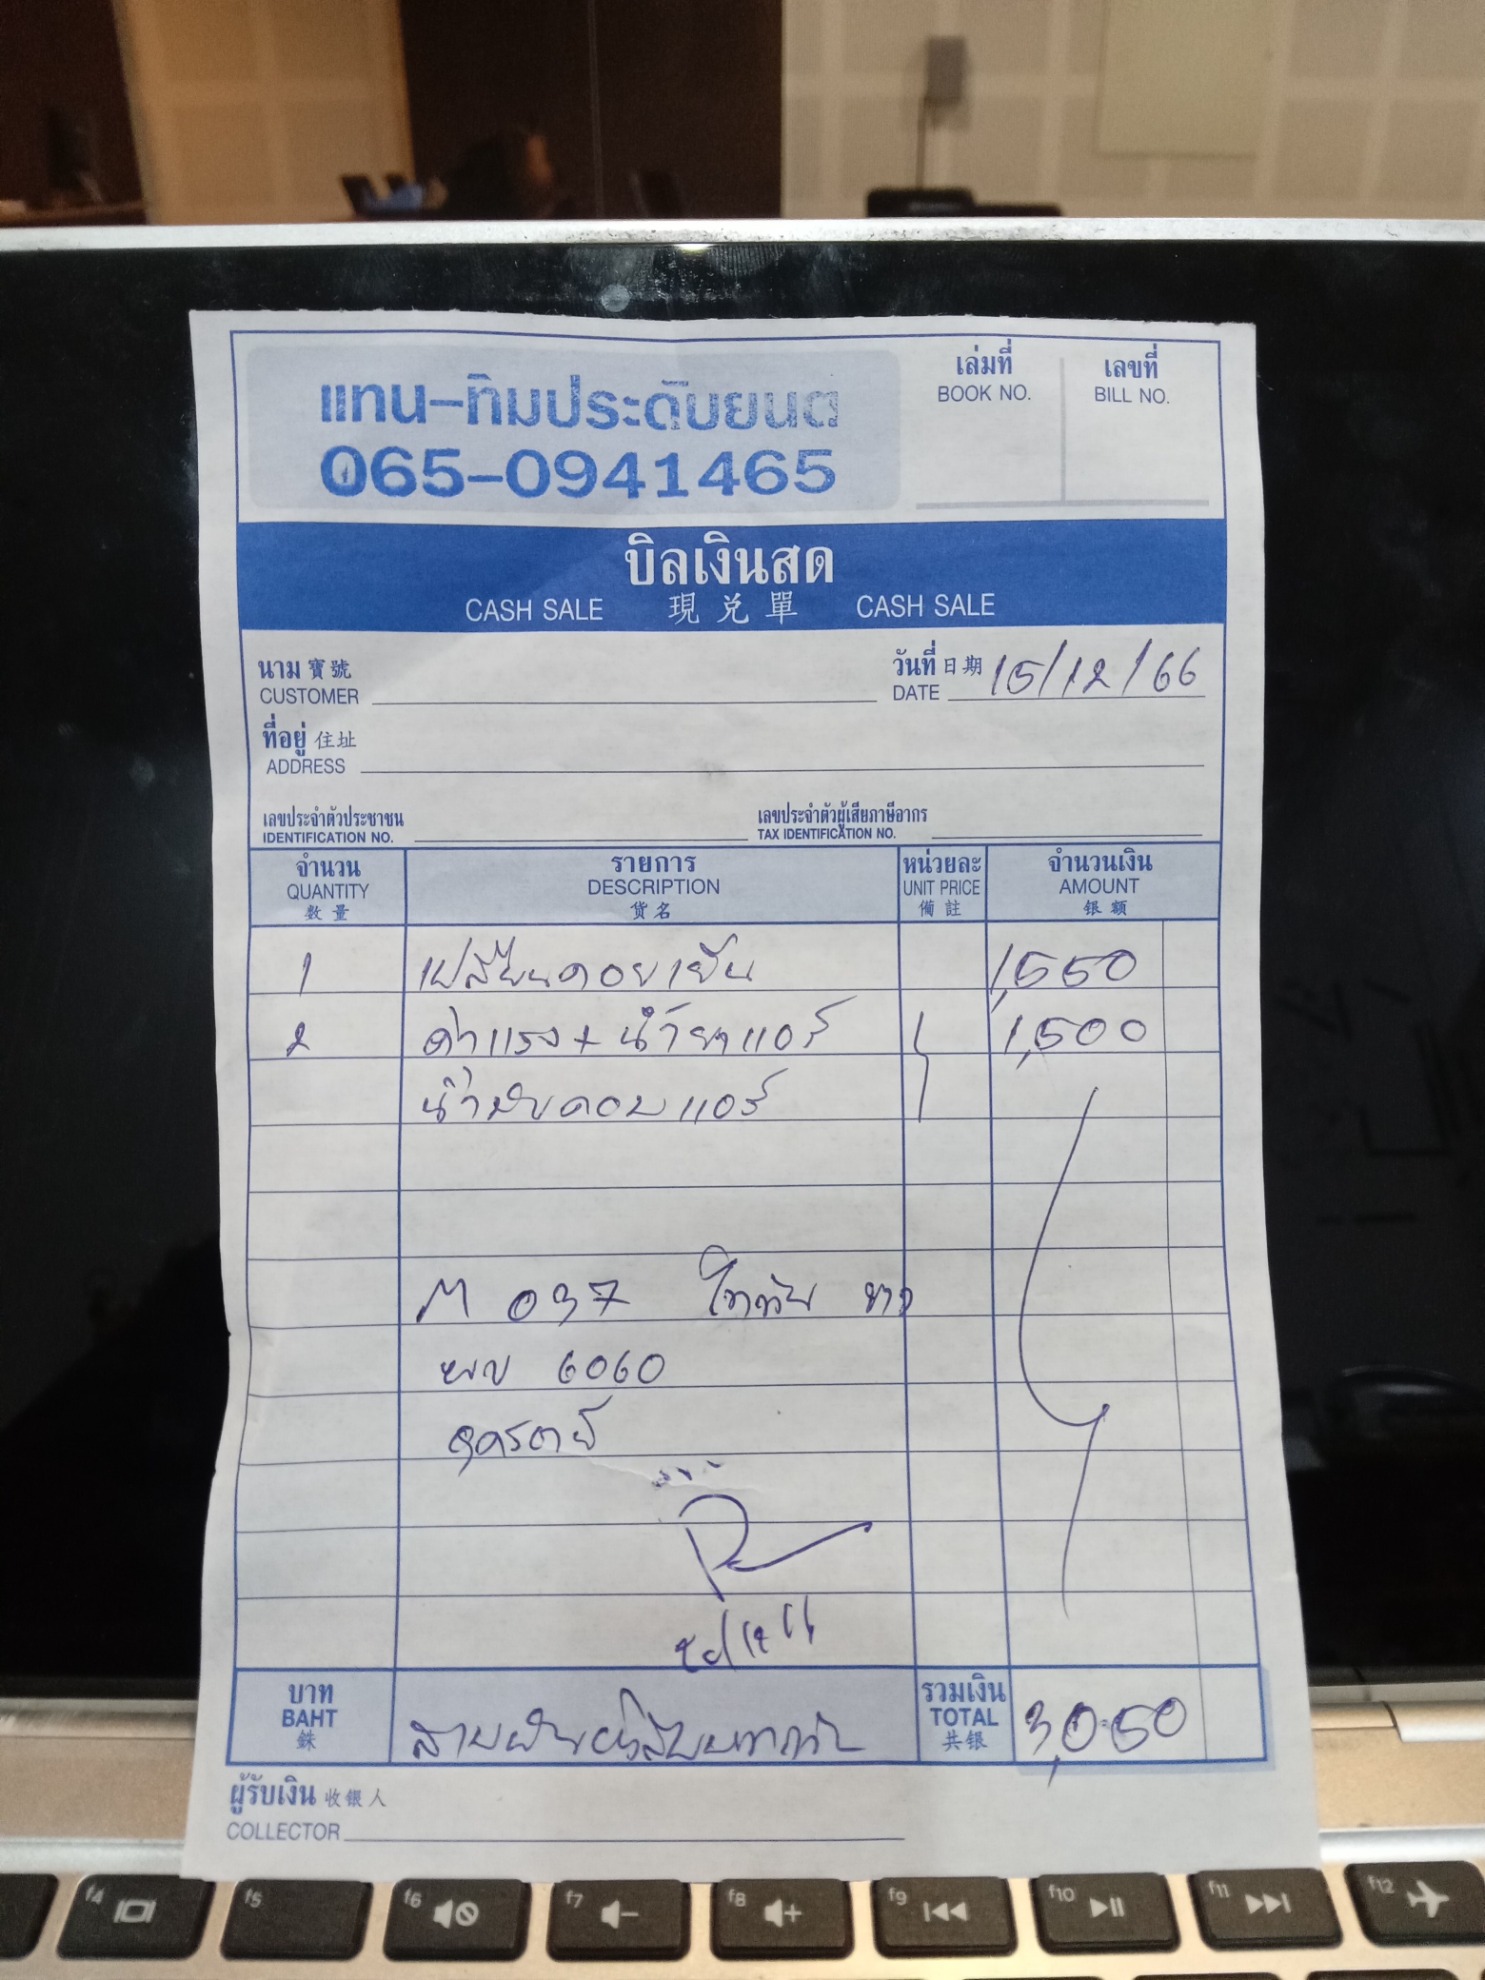 แทน-ทิมประดับยนต์
065-0941465
เล่มที่
BOOK NO.
เลขที่
BILL NO.
บิลเงินสด
CASH SALE 現兑單 CASH SALE
นาม 寳號
CUSTOMER
วันที่ 日期
DATE 15/12/66
ที่อยู่ 住址
ADDRESS
เลขประจำตัวประชาชน
IDENTIFICATION NO.
เลขประจำตัวผู้เสียภาษีอากร
TAX IDENTIFICATION NO.
จำนวน
QUANTITY
数量
รายการ
DESCRIPTION
貨名
หน่วยละ
UNIT PRICE
備註
จำนวนเงิน
AMOUNT
银额
1 เปลี่ยนคอยเย็น 1,550
2 ค่าแรง + น้ำยาแอร์ 1,500
น้ำมันคอมแอร์
M 037 ไททัน ขาว
6060
บาท
BAHT
銖
สามพันห้าสิบบาทถ้วน
รวมเงิน
TOTAL
共银
3,050
ผู้รับเงิน 收銀人
COLLECTOR
f4
f5
f6
f7
f8
f9
f10
f11
f12